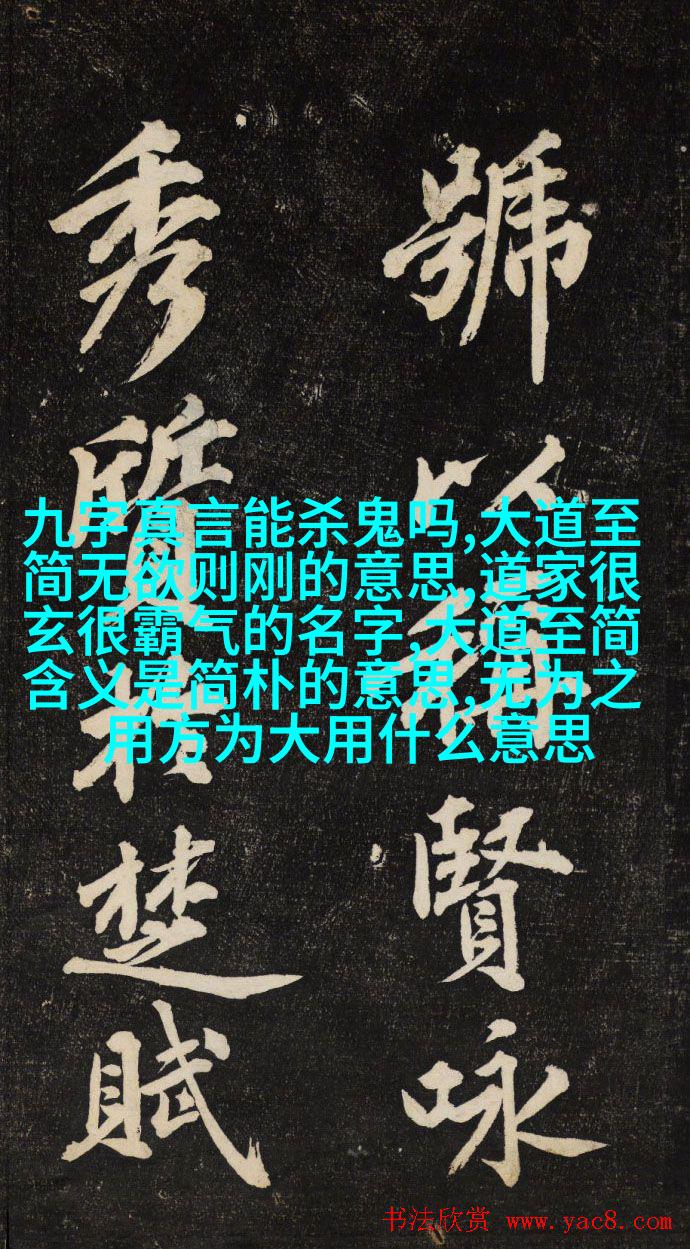 號賢咏
秀質於楚賦
九字真言能杀鬼吗,大道至
简无欲则刚的意思,道家很
玄很霸气的名字,大道至简
含义是简朴的意思,无为之
用方为大用什么意思
书法欣赏 www.yac8.com